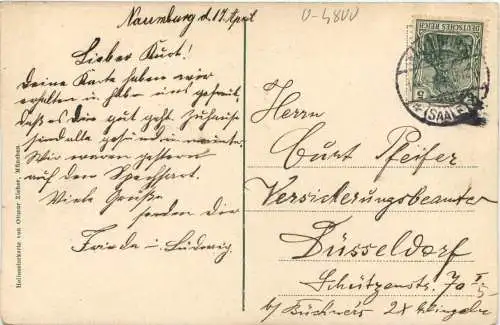 Naumburg d. 17. April
U-4800
Lieber Kurt!
Deine Karte haben wir
erhalten u. habe uns gefreut,
daß es dir gut geht. Zuhause
sind alle gesund u. munter.
Wir waren gestern
auf dem
Viele Grüße
senden dir
Frieda u. Ludwig.
DEUTSCHES REICH
5
(SAALE)
Herrn
Curt Pfeifer
Versicherungsbeamter
Düsseldorf
Schützenstr. 7a I
b/ Büchner's 2x klingeln
Heliocolorkarte von Ottmar Zieher, München